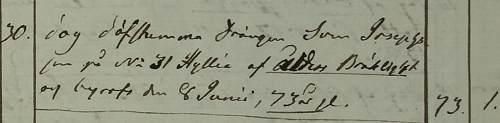 30. dog Drängen Sven Joseph
son på No 31 Hyllie af ålders Bräcklighet
och begrofs den 8 Junii, 73 år gl. 73. 1.